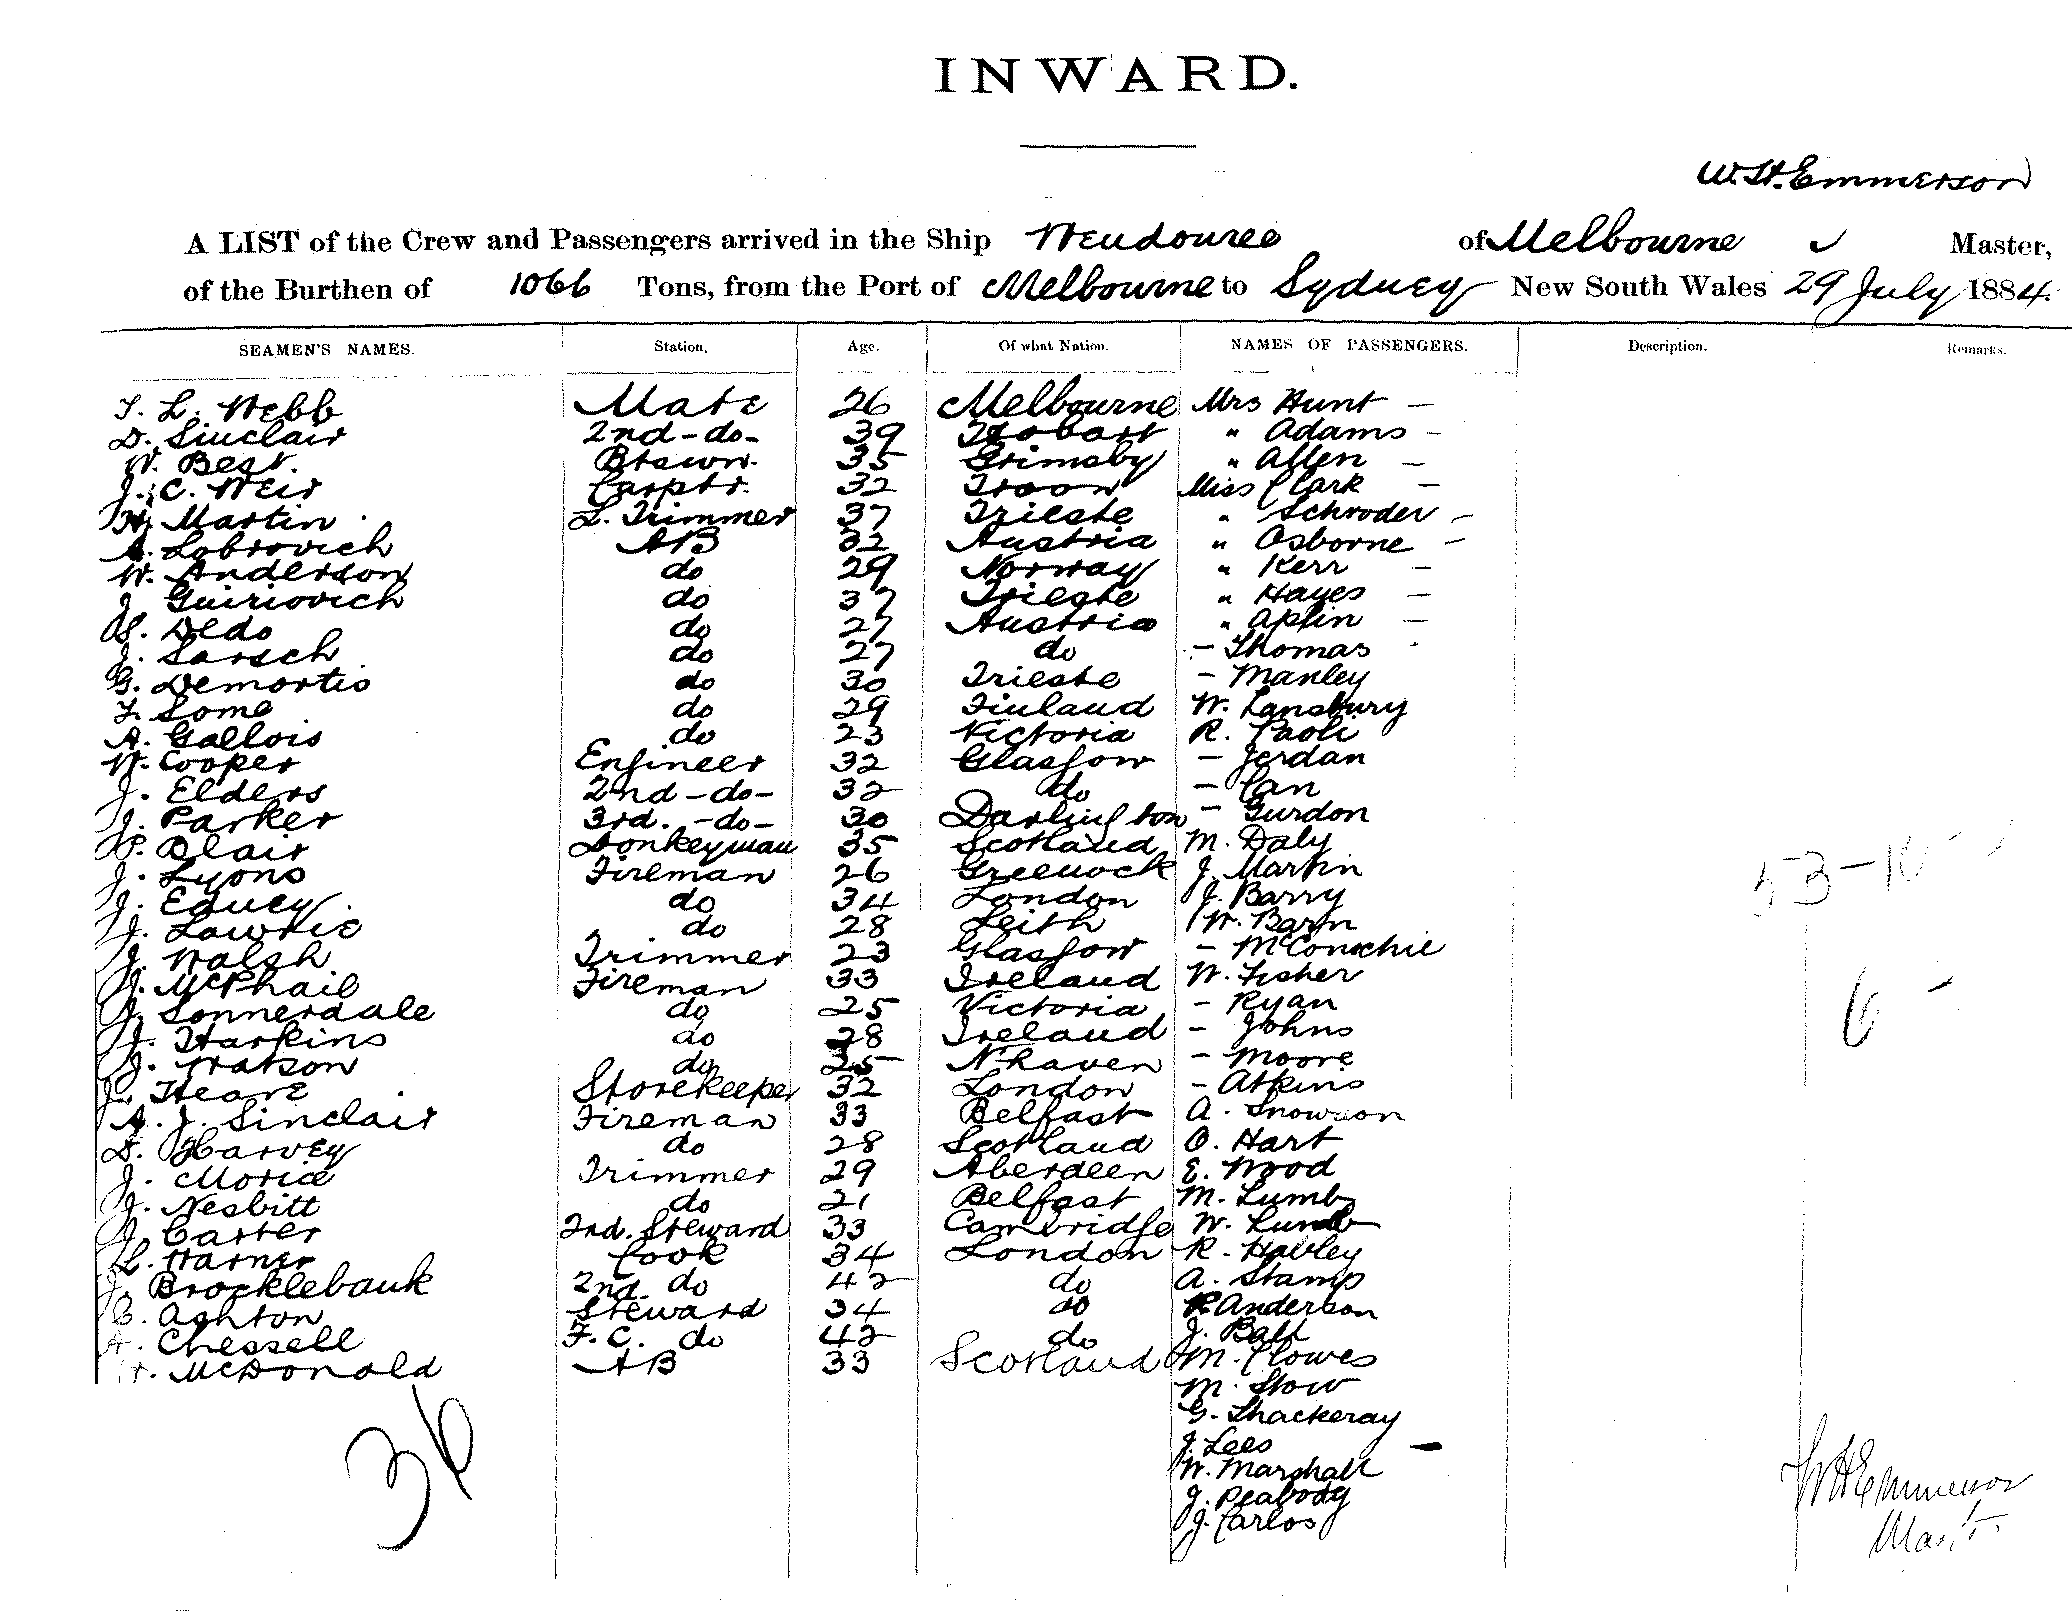 INWARD.
W. H. Emmerson
A LIST of the Crew and Passengers arrived in the Ship Wendouree of Melbourne Master,
of the Burthen of 1066 Tons, from the Port of Melbourne to Sydney New South Wales 29 July 1884.
SEAMEN'S NAMES. Station, Age. Of what Nation. NAMES OF PASSENGERS. Description. Remarks.
T. L. Webb Mate 26 Melbourne Mrs Hunt -
D. Sinclair 2nd -do- 39 Hobart " Adams -
W. Best. Btswn. 35 Grimsby " Allen -
J. C. Weir Carptr. 32 Troon Miss Clark -
H. Martin L. Trimmer 37 Trieste " Schroder -
A. Lobrovich AB 32 Austria " Osborne -
W. Anderson do 29 Norway " Kerr -
J. Guiriovich do 37 Trieste " Hayes -
S. Dedo do 27 Austria " Aplin -
J. Sarsch do 27 do - Thomas
G. Demortis do 30 Trieste - Manley
F. Some do 29 Finland W. Lansbury
A. Gallois do 23 Victoria R. Paoli
W. Cooper Engineer 32 Glasgow - Jerdan
J. Elders 2nd -do- 32 do - Can
J. Parker 3rd. -do- 30 Darlington - Gurdon
P. Blair Donkeyman 35 Scotland M. Daly
J. Lyons Fireman 26 Greenock J. Martin
J. Equey do 34 London J. Barry
J. Lawrie do 28 Leith W. Barn
J. Walsh Trimmer 23 Glasgow - McConachie
J. McPhail Fireman 33 Ireland W. Fisher
J. Sonnerdale do 25 Victoria - Ryan
J. Harkins do 28 Ireland - Johns
J. Watson do 25 N'haven - Moore
J. Heane Storekeeper 32 London - Atkins
A. J. Sinclair Fireman 33 Belfast A. Snowdon
D. Harvey do 28 Scotland O. Hart
J. Morice Trimmer 29 Aberdeen E. Wood
J. Nesbitt do 21 Belfast M. Lumb
J. Carter 2nd. Steward 33 Cambridge W. Lumb
L. Warner Cook 34 London R. Habley
J. Brocklebank 2nd do 42 do A. Stamp
B. Ashton Steward 34 do R. Anderson
A. Chessell F. C. do 42 do J. Ball
McDonald AB 33 Scotland M. Clowes
M. Stow
G. Thackeray
J. Lees -
W. Marshall
J. Peabody
J. Carlos
36
53-10
6 -
W H Emmerson
Mast